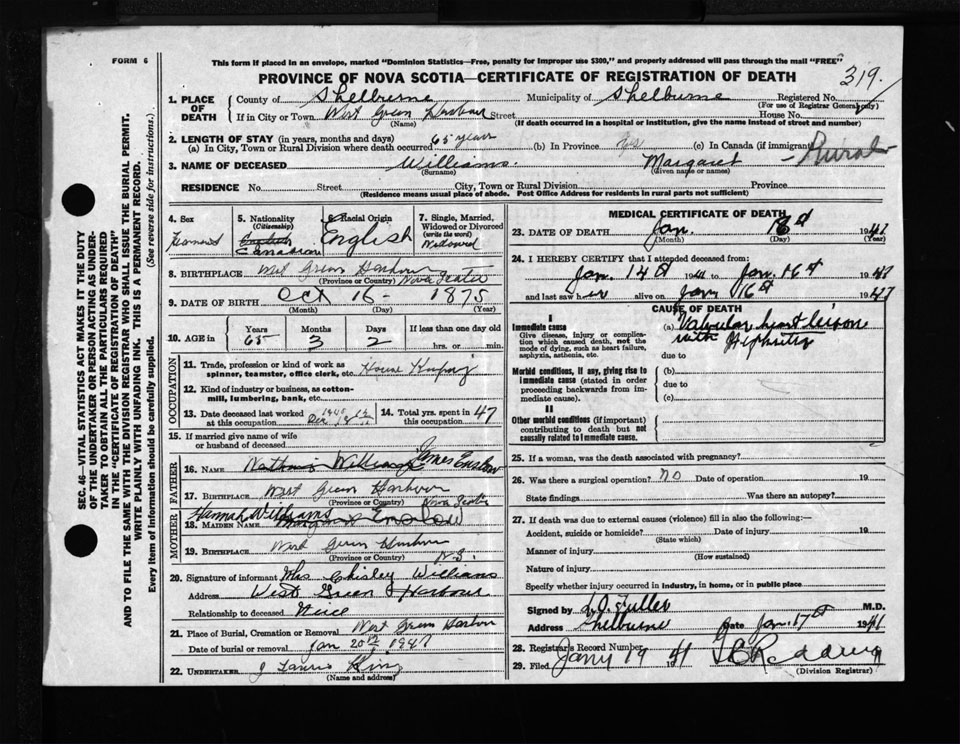 FORM 6
This form if placed in an envelope, marked "Dominion Statistics—Free, penalty for improper use $300," and properly addressed will pass through the mail "FREE"
PROVINCE OF NOVA SCOTIA—CERTIFICATE OF REGISTRATION OF DEATH
319.
1. PLACE OF DEATH
County of Shelburne Municipality of Shelburne Registered No.
(For use of Registrar General only)
If in City or Town West Green Harbour Street House No.
(Name) (If death occurred in a hospital or institution, give the name instead of street and number)
2. LENGTH OF STAY (in years, months and days)
(a) In City, Town or Rural Division where death occurred 65 years (b) In Province Yes (c) In Canada (if immigrant)
Rural
3. NAME OF DECEASED Williams. Margaret
(Surname) (Given name or names)
RESIDENCE No. Street City, Town or Rural Division Province
(Residence means usual place of abode. Post Office Address for residents in rural parts not sufficient)
4. Sex
5. Nationality (Citizenship) Canadian
6. Racial Origin English
7. Single, Married, Widowed or Divorced (write the word) Widowed
8. BIRTHPLACE West Green Harbour Nova Scotia
(Province or Country)
9. DATE OF BIRTH Oct 16 - 1875
(Month) (Day) (Year)
10. AGE in Years Months Days If less than one day old
65 3 2 hrs. or min.
OCCUPATION
11. Trade, profession or kind of work as spinner, teamster, office clerk, etc. House Keeping
12. Kind of industry or business, as cotton-mill, lumbering, bank, etc.
13. Date deceased last worked at this occupation Dec 1940
14. Total yrs. spent in this occupation 47
15. If married give name of wife or husband of deceased
FATHER
16. NAME Nathanis Williams James Enslow
17. BIRTHPLACE West Green Harbour Nova Scotia
(Province or Country)
MOTHER
Hannah Williams
18. MAIDEN NAME Margaret Enslow
19. BIRTHPLACE West Green Harbour N.S.
(Province or Country)
20. Signature of informant Mrs Chisley Williams
Address West Green Harbour.
Relationship to deceased Neice
21. Place of Burial, Cremation or Removal West Green Harbour
Date of burial or removal Jan 20th 1941
22. UNDERTAKER J Lauris King
(Name and address)
MEDICAL CERTIFICATE OF DEATH
23. DATE OF DEATH Jan. 18th 1941
(Month) (Day) (Year)
24. I HEREBY CERTIFY that I attended deceased from:
Jan. 14th 1941 to Jan. 16th 1941
and last saw her alive on Jany 16th 1941
CAUSE OF DEATH
I
Immediate cause
Give disease, injury or complication which caused death, not the mode of dying, such as heart failure, asphyxia, asthenia, etc.
(a) Valvular heart lesion
with Nephritis
due to
Morbid conditions, if any, giving rise to immediate cause (stated in order proceeding backwards from immediate cause).
(b)
due to
(c)
II
Other morbid conditions (if important) contributing to death but not causally related to immediate cause.
25. If a woman, was the death associated with pregnancy?
26. Was there a surgical operation? NO Date of operation 19
State findings Was there an autopsy?
27. If death was due to external causes (violence) fill in also the following:—
Accident, suicide or homicide? Date of injury 19
(State which)
Manner of injury
(How sustained)
Nature of injury
Specify whether injury occurred in industry, in home, or in public place
Signed by L.O. Fuller M.D.
Address Shelburne Date Jan. 17th 1941
28. Registrar's Record Number
29. Filed Jany 19 1941
(Division Registrar)
SEC. 46—VITAL STATISTICS ACT MAKES IT THE DUTY
OF THE UNDERTAKER OR PERSON ACTING AS UNDERTAKER TO OBTAIN ALL THE PARTICULARS REQUIRED
IN THE "CERTIFICATE OF REGISTRATION OF DEATH"
AND TO FILE THE SAME WITH THE DIVISION REGISTRAR, WHO SHALL ISSUE THE BURIAL PERMIT.
WRITE PLAINLY WITH UNFADING INK. THIS IS A PERMANENT RECORD.
Every item of information should be carefully supplied. (See reverse side for instructions.)